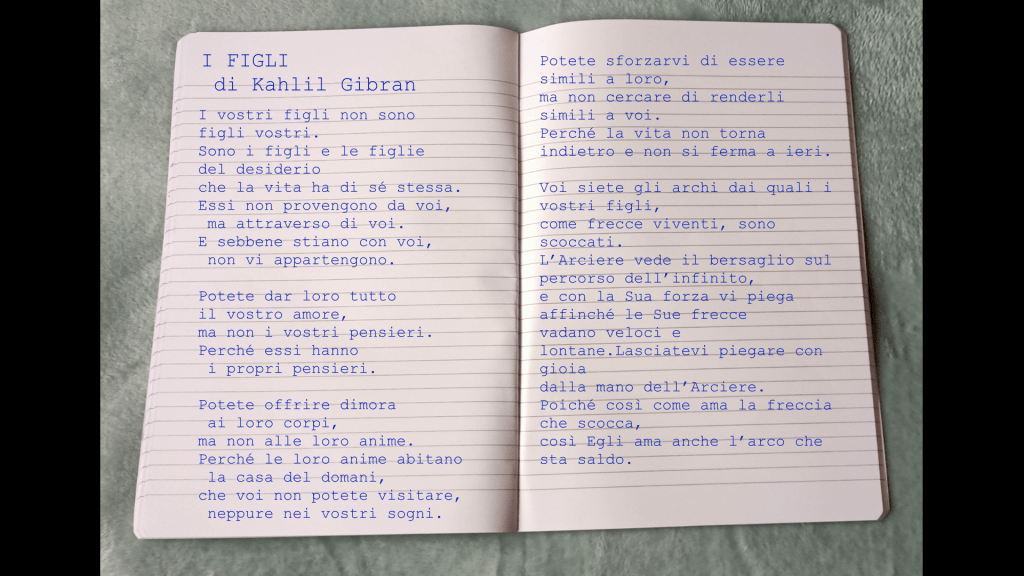 I FIGLI
di Kahlil Gibran
I vostri figli non sono
figli vostri.
Sono i figli e le figlie
del desiderio
che la vita ha di sé stessa.
Essi non provengono da voi,
ma attraverso di voi.
E sebbene stiano con voi,
non vi appartengono.
Potete dar loro tutto
il vostro amore,
ma non i vostri pensieri.
Perché essi hanno
i propri pensieri.
Potete offrire dimora
ai loro corpi,
ma non alle loro anime.
Perché le loro anime abitano
la casa del domani,
che voi non potete visitare,
neppure nei vostri sogni.
Potete sforzarvi di essere
simili a loro,
ma non cercare di renderli
simili a voi.
Perché la vita non torna
indietro e non si ferma a ieri.
Voi siete gli archi dai quali i
vostri figli,
come frecce viventi, sono
scoccati.
L’Arciere vede il bersaglio sul
percorso dell’infinito,
e con la Sua forza vi piega
affinché le Sue frecce
vadano veloci e
lontane.Lasciatevi piegare con
gioia
dalla mano dell’Arciere.
Poiché così come ama la freccia
che scocca,
così Egli ama anche l’arco che
sta saldo.